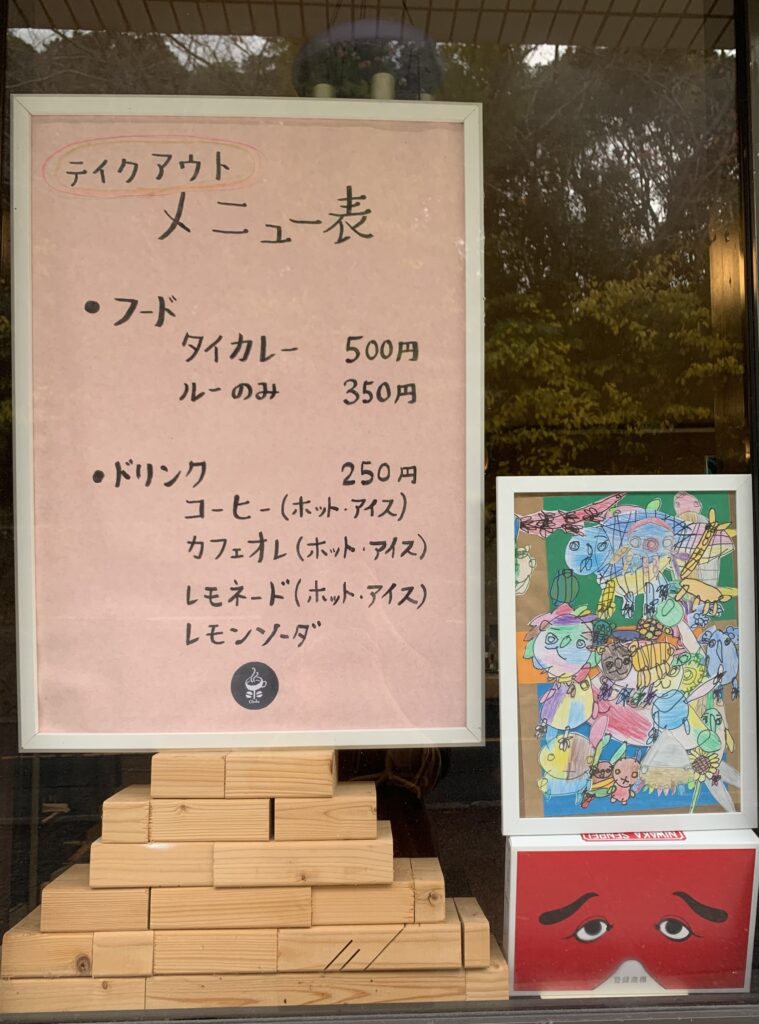 テイクアウト
メニュー表
・フード
タイカレー 500円
ルーのみ 350円
・ドリンク 250円
コーヒー(ホット・アイス)
カフェオレ(ホット・アイス)
レモネード(ホット・アイス)
レモンソーダ
NIWAKA SENPEI
登録商標